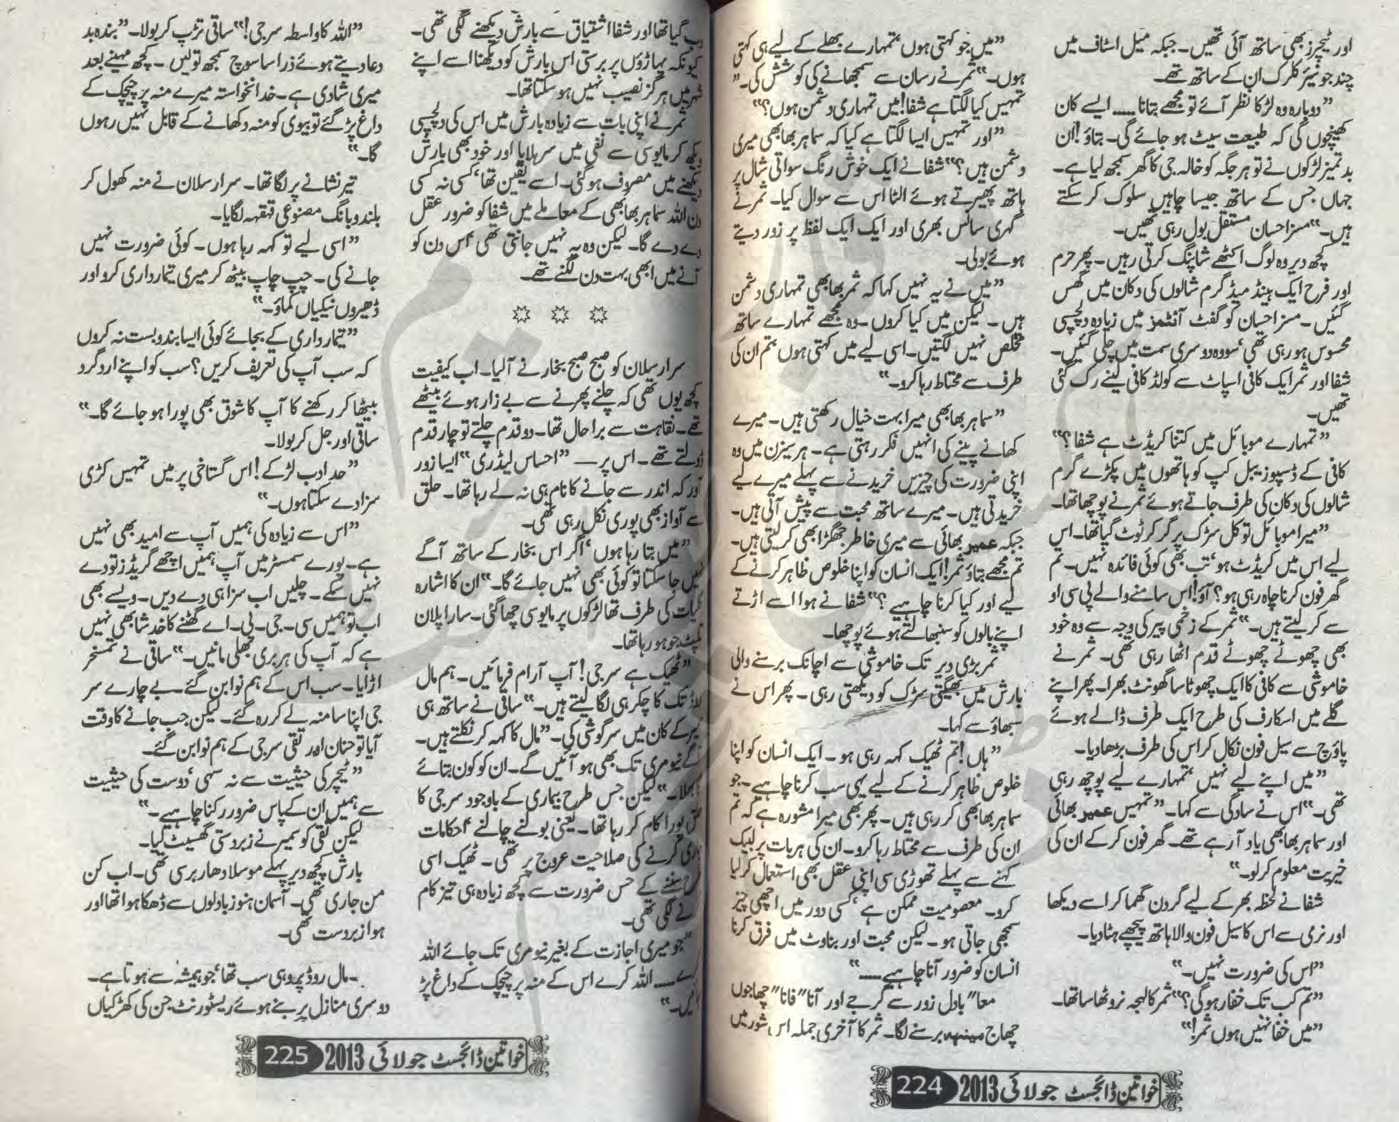 اور ٹیچرز بھی ساتھ آئی تھیں۔ جبکہ میل اسٹاف میں
چند جونیئر کلرک ان کے ساتھ تھے۔
”دوبارہ وہ لڑکا نظر آئے تو مجھے بتانا ...... ایسے کان
کھینچوں گی کہ طبیعت سیٹ ہو جائے گی۔ بتاؤ! ان
بدتمیز لڑکوں نے تو ہر جگہ کو خالہ جی کا گھر سمجھ لیا ہے۔
جہاں جس کے ساتھ جیسا چاہیں سلوک کر سکتے
ہیں۔“ مسز احسان مستقل بول رہی تھیں۔
کچھ دیر وہ لوگ اکٹھے شاپنگ کرتی رہیں۔ پھر حرم
اور فرح ایک ہینڈ میڈ گرم شالوں کی دکان میں گھس
گئیں۔ مسز احسان کو گفٹ آئٹمز میں زیادہ دلچسپی
محسوس ہو رہی تھی، سو وہ دوسری سمت میں چلی گئیں۔
شفا اور ثمر ایک کافی اسپاٹ سے کولڈ کافی لینے رک گئی
تھیں۔
”تمہارے موبائل میں کتنا کریڈٹ ہے شفا؟“
کافی کے ڈسپوزیبل کپ کو ہاتھوں میں پکڑے گرم
شالوں کی دکان کی طرف جاتے ہوئے ثمر نے پوچھا تھا۔
”میرا موبائل تو کل سڑک پر گر کر ٹوٹ گیا تھا۔ اس
لیے اس میں کریڈٹ ہو، تب بھی کوئی فائدہ نہیں۔ تم
گھر فون کرنا چاہ رہی ہو؟ آؤ! اس سامنے والے پی سی او
سے کر لیتے ہیں۔“ ثمر کے زخمی پیر کی وجہ سے وہ خود
بھی چھوٹے چھوٹے قدم اٹھا رہی تھی۔ ثمر نے
خاموشی سے کافی کا ایک چھوٹا سا گھونٹ بھرا۔ پھر اپنے
گلے میں اسکارف کی طرح ایک طرف ڈالے ہوئے
پاؤچ سے سیل فون نکال کر اس کی طرف بڑھا دیا۔
”میں اپنے لیے نہیں، تمہارے لیے پوچھ رہی
تھی۔“ اس نے سادگی سے کہا۔ ”تمہیں عمیر بھائی
اور ساہر بھابھی یاد آ رہے تھے۔ گھر فون کر کے ان کی
خیریت معلوم کر لو۔“
شفا نے لحظہ بھر کے لیے گردن گھما کر اسے دیکھا
اور نرمی سے اس کا سیل فون والا ہاتھ پیچھے ہٹا دیا۔
”اس کی ضرورت نہیں۔“
”تم کب تک خفا رہو گی؟“ ثمر کا لہجہ نروٹھا سا تھا۔
”میں خفا نہیں ہوں ثمر!“
”میں جو کہتی ہوں، تمہارے بھلے کے لیے ہی کہتی
ہوں۔“ ثمر نے رسان سے سمجھانے کی کوشش کی۔
”تمہیں کیا لگتا ہے شفا! میں تمہاری دشمن ہوں؟“
”اور تمہیں ایسا لگتا ہے کیا کہ ساہر بھابھی میری
دشمن ہیں؟“ شفا نے ایک خوش رنگ سواتی شال پر
ہاتھ پھیرتے ہوئے الٹا اس سے سوال کیا۔ ثمر نے
گہری سانس بھری اور ایک ایک لفظ پر زور دیتے
ہوئے بولی۔
”میں نے یہ نہیں کہا کہ ثمر بھابھی تمہاری دشمن
ہیں۔ لیکن میں کیا کروں۔ وہ مجھے تمہارے ساتھ
مخلص نہیں لگتیں۔ اسی لیے میں کہتی ہوں، تم ان کی
طرف سے محتاط رہا کرو۔“
”ساہر بھابھی میرا بہت خیال رکھتی ہیں۔ میرے
کھانے پینے کی انہیں فکر رہتی ہے۔ ہر سیزن میں وہ
اپنی ضرورت کی چیزیں خریدنے سے پہلے میرے لیے
خریدتی ہیں۔ میرے ساتھ محبت سے پیش آتی ہیں۔
جبکہ عمیر بھائی سے میری خاطر جھگڑا بھی کر لیتی ہیں۔
تم مجھے بتاؤ ثمر! ایک انسان کو اپنا خلوص ظاہر کرنے کے
لیے اور کیا کرنا چاہیے؟“ شفا نے ہوا سے اڑتے
اپنے بالوں کو سنبھالتے ہوئے پوچھا۔
ثمر بڑی دیر تک خاموشی سے اچانک برسنے والی
بارش میں بھیگتی سڑک کو دیکھتی رہی۔ پھر اس نے
سبھاؤ سے کہا۔
”ہاں! تم ٹھیک کہہ رہی ہو۔ ایک انسان کو اپنا
خلوص ظاہر کرنے کے لیے یہی سب کرنا چاہیے۔ جو
ساہر بھابھی کر رہی ہیں۔ پھر بھی میرا مشورہ ہے کہ تم
ان کی طرف سے محتاط رہا کرو۔ ان کی ہر بات پر لبیک
کہنے سے پہلے تھوڑی سی اپنی عقل بھی استعمال کر لیا
کرو۔ معصومیت ممکن ہے، کسی دور میں اچھی چیز
سمجھی جاتی ہو۔ لیکن محبت اور بناوٹ میں فرق کرنا
انسان کو ضرور آنا چاہیے ......“
معا” بادل زور سے گرجے اور آنا” فانا” چھاجوں
چھاج مینہ برسنے لگا۔ ثمر کا آخری جملہ اس شور میں
خواتین ڈائجسٹ جولائی 2013 224
گیا تھا اور شفا اشتیاق سے بارش دیکھنے لگی تھی۔
کیونکہ پہاڑوں پر برستی اس بارش کو دیکھنا اسے اپنے
شہر میں ہرگز نصیب نہیں ہو سکتا تھا۔
ثمر نے اپنی بات سے زیادہ بارش میں اس کی دلچسپی
دیکھ کر مایوسی سے نفی میں سر ہلایا اور خود بھی بارش
دیکھنے میں مصروف ہو گئی۔ اسے یقین تھا، کسی نہ کسی
دن اللہ ساہر بھابھی کے معاملے میں شفا کو ضرور عقل
دے دے گا۔ لیکن وہ یہ نہیں جانتی تھی، اس دن کو
آنے میں ابھی بہت دن لگنے تھے۔
سر ارسلان کو صبح صبح بخار نے آ لیا۔ اب کیفیت
کچھ یوں تھی کہ چلنے پھرنے سے بے زار ہوئے بیٹھے
تھے۔ نقاہت سے برا حال تھا۔ دو قدم چلتے تو چار قدم
ڈولتے تھے۔ اس پر — ”احساس لیڈری“ ایسا زور
آور کہ اندر سے جانے کا نام ہی نہ لے رہا تھا۔ حلق
سے آواز بھی پوری نکل رہی تھی۔
”میں بتا رہا ہوں، اگر اس بخار کے ساتھ آگے
نہیں جا سکتا تو کوئی بھی نہیں جائے گا۔“ ان کا اشارہ
کی طرف تھا لڑکوں پر مایوسی چھا گئی۔ سارا پلان
چوپٹ جو ہو رہا تھا۔
”ٹھیک ہے سر جی! آپ آرام فرمائیں۔ ہم مال
روڈ تک کا چکر ہی لگا لیتے ہیں۔“ ساقی نے ساتھ ہی
کے کان میں سرگوشی کی۔ ”مال کا کہہ کر نکلتے ہیں۔
آگے نیو مری تک بھی ہو آئیں گے۔ ان کو کون بتائے
بھلا۔“ لیکن جس طرح بیماری کے باوجود سر جی کا
حلق پورا کام کر رہا تھا۔ یعنی بولنے چالنے، احکامات
جاری کرنے کی صلاحیت عروج پر تھی۔ ٹھیک اسی
طرح سننے کے حس ضرورت سے کچھ زیادہ ہی تیز کام
کرنے لگی تھی۔
”جو میری اجازت کے بغیر نیو مری تک جائے اللہ
کرے ...... اللہ کرے اس کے منہ پر چیچک کے داغ پڑ
جائیں۔“
”اللہ کا واسطہ سر جی!“ ساقی تڑپ کر بولا۔ ”بندہ بد
دعا دیتے ہوئے ذرا سا سوچ سمجھ تو لیں۔ کچھ مہینے بعد
میری شادی ہے۔ خدانخواستہ میرے منہ پر چیچک کے
داغ پڑ گئے تو بیوی کو منہ دکھانے کے قابل نہیں رہوں
گا۔“
تیر نشانے پر لگا تھا۔ سر ارسلان نے منہ کھول کر
بلند و بانگ مصنوعی قہقہہ لگایا۔
”اسی لیے تو کہہ رہا ہوں۔ کوئی ضرورت نہیں
جانے کی۔ چپ چاپ بیٹھ کر میری تیمارداری کرو اور
ڈھیروں نیکیاں کماؤ۔“
”تیمارداری کے بجائے کوئی ایسا بندوبست نہ کروں
کہ سب آپ کی تعریف کریں؟ سب کو اپنے ارد گرد
بیٹھا کر رکھنے کا آپ کا شوق بھی پورا ہو جائے گا۔“
ساقی اور جل کر بولا۔
”حد ادب لڑکے! اس گستاخی پر میں تمہیں کڑی
سزا دے سکتا ہوں۔“
”اس سے زیادہ کی ہمیں آپ سے امید بھی نہیں
ہے۔ پورے سمسٹر میں آپ ہمیں اچھے گریڈز تو دے
نہیں سکے۔ چلیں اب سزا ہی دے دیں۔ ویسے بھی
اب تو ہمیں سی۔ جی۔ پی۔ اے گھٹنے کا خدشا بھی نہیں
ہے کہ آپ کی ہر بری بھلی مانیں۔“ ساقی نے تمسخر
اڑایا۔ سب اس کے ہم نوا بن گئے۔ بے چارے سر
جی اپنا سا منہ لے کر رہ گئے۔ لیکن جب جانے کا وقت
آیا تو حنان اور تقی سر جی کے ہم نوا بن گئے۔
”ٹیچر کی حیثیت سے نہ سہی، دوست کی حیثیت
سے ہمیں ان کے پاس ضرور رکنا چاہیے۔“
لیکن تقی کو سمیر نے زبردستی گھسیٹ لیا۔
بارش کچھ دیر پہلے موسلا دھار برسی تھی۔ اب کن
من جاری تھی۔ آسمان ہنوز بادلوں سے ڈھکا ہوا تھا اور
ہوا زبردست تھی۔
مال روڈ پر وہی سب تھا، جو ہمیشہ سے ہوتا ہے۔
دوسری منازل پر بنے ہوئے ریسٹورنٹ جن کی کھڑکیاں
خواتین ڈائجسٹ جولائی 2013 225